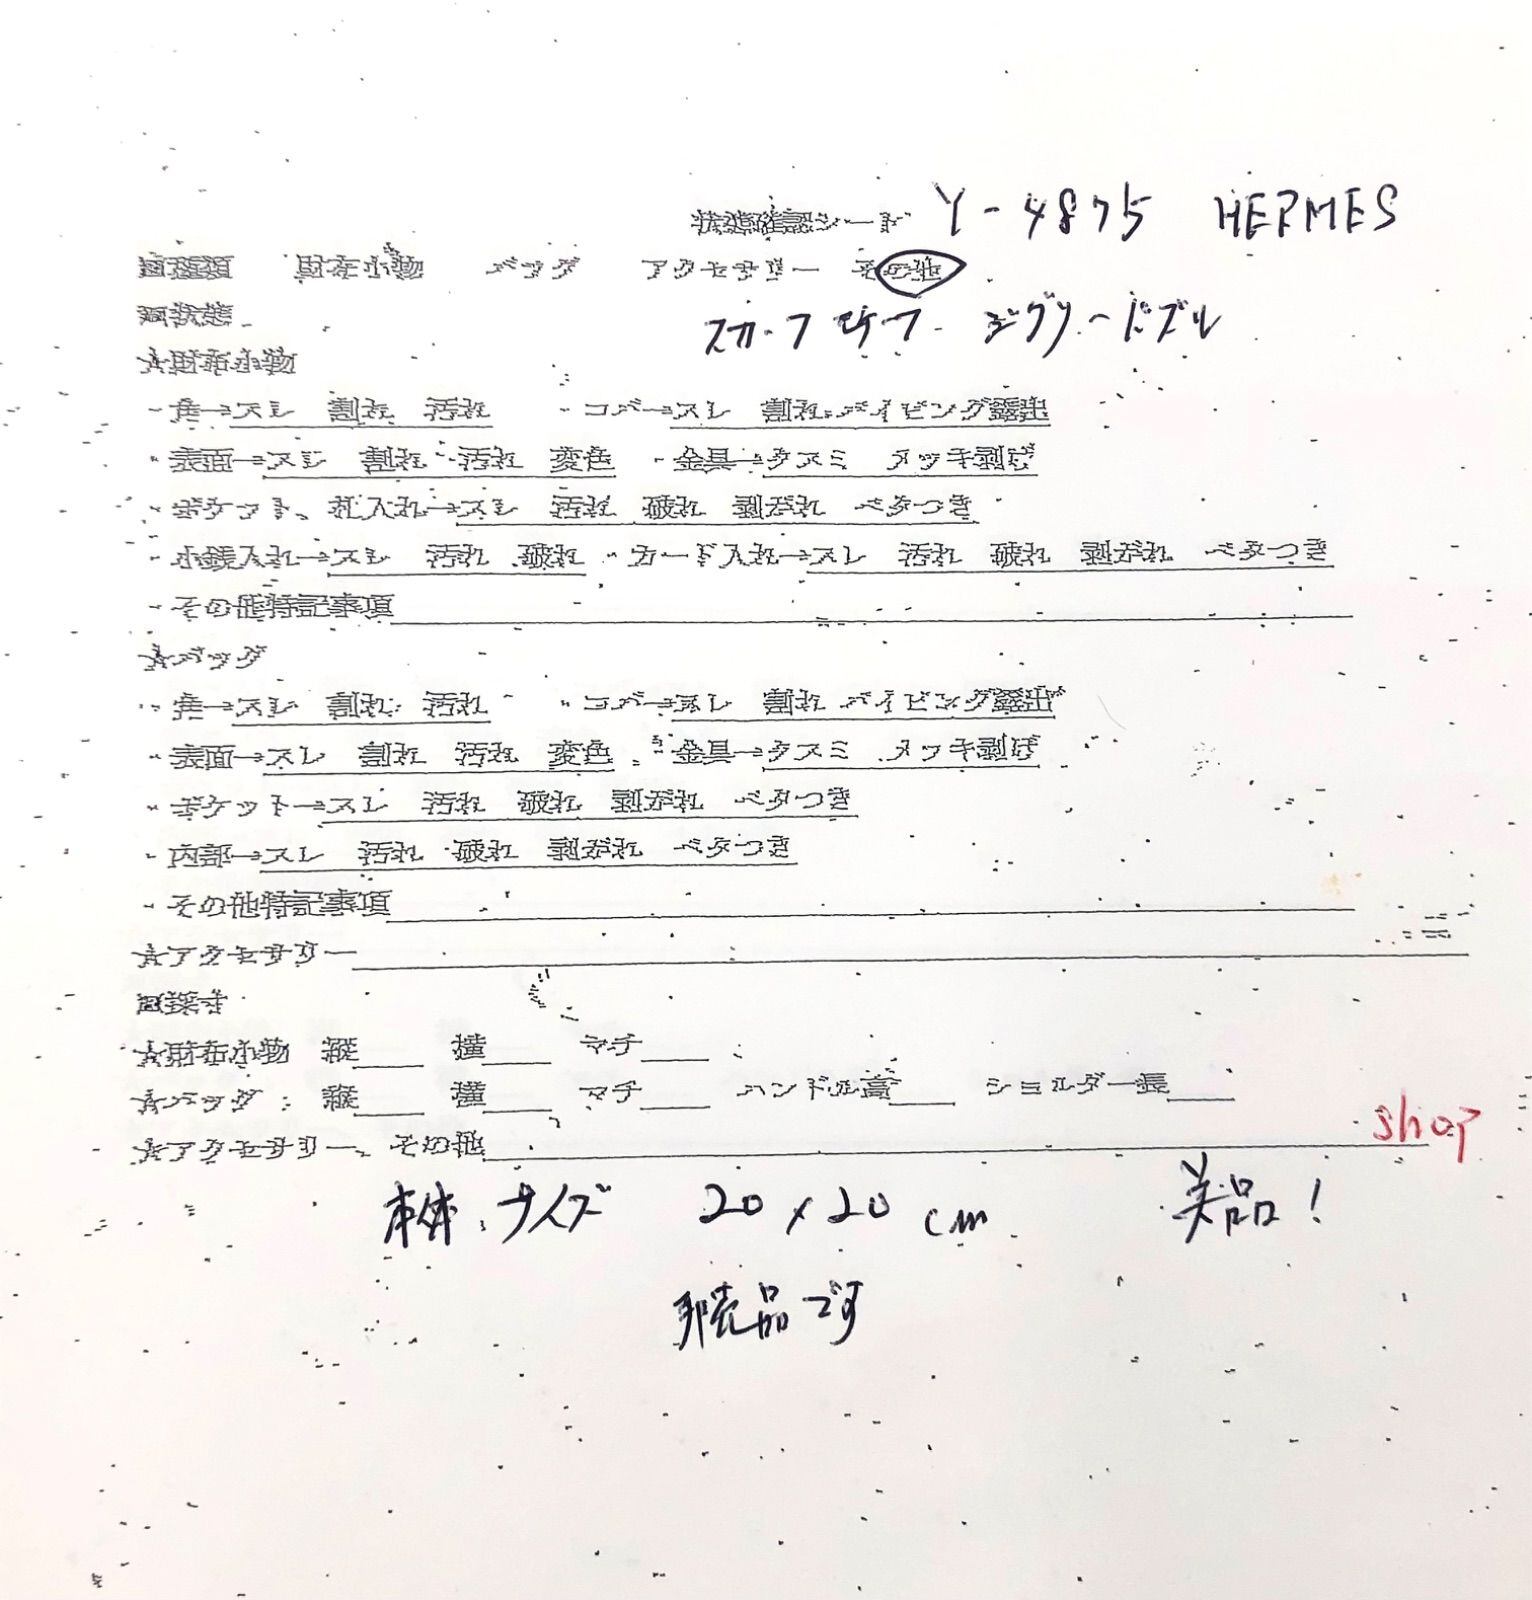 状態確認シート Y-4875 HERMES
□種類 財布小物 バッグ アクセサリー その他
□状態 スカーフ モチーフ ジグソーパズル
☆財布小物
・角→スレ 割れ 汚れ ・コバ→スレ 割れ パイピング露出
・表面→スレ 割れ 汚れ 変色 ・金具→クスミ メッキ剥げ
・ポケット、札入れ→スレ 汚れ 破れ 剥がれ ベタつき
・小銭入れ→スレ 汚れ 破れ ・カード入れ→スレ 汚れ 破れ 剥がれ ベタつき
・その他特記事項
☆バッグ
・角→スレ 割れ 汚れ ・コバ→スレ 割れ パイピング露出
・表面→スレ 割れ 汚れ 変色 ・金具→クスミ メッキ剥げ
・ポケット→スレ 汚れ 破れ 剥がれ ベタつき
・内部→スレ 汚れ 破れ 剥がれ ベタつき
・その他特記事項
☆アクセサリー
□採寸
☆財布小物 縦 横 マチ
☆バッグ 縦 横 マチ ハンドル高 ショルダー長
☆アクセサリー、その他 shop
本体サイズ 20×20 cm 美品!
非売品です